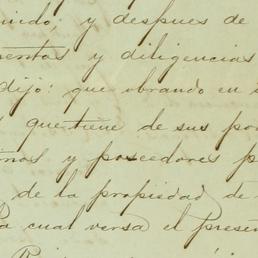 nido, y despues de
mentos y diligencias
dijo: que obrando en
que tiene de sus po
rios y poseedores p
de la propiedad de
la cual versa el presen